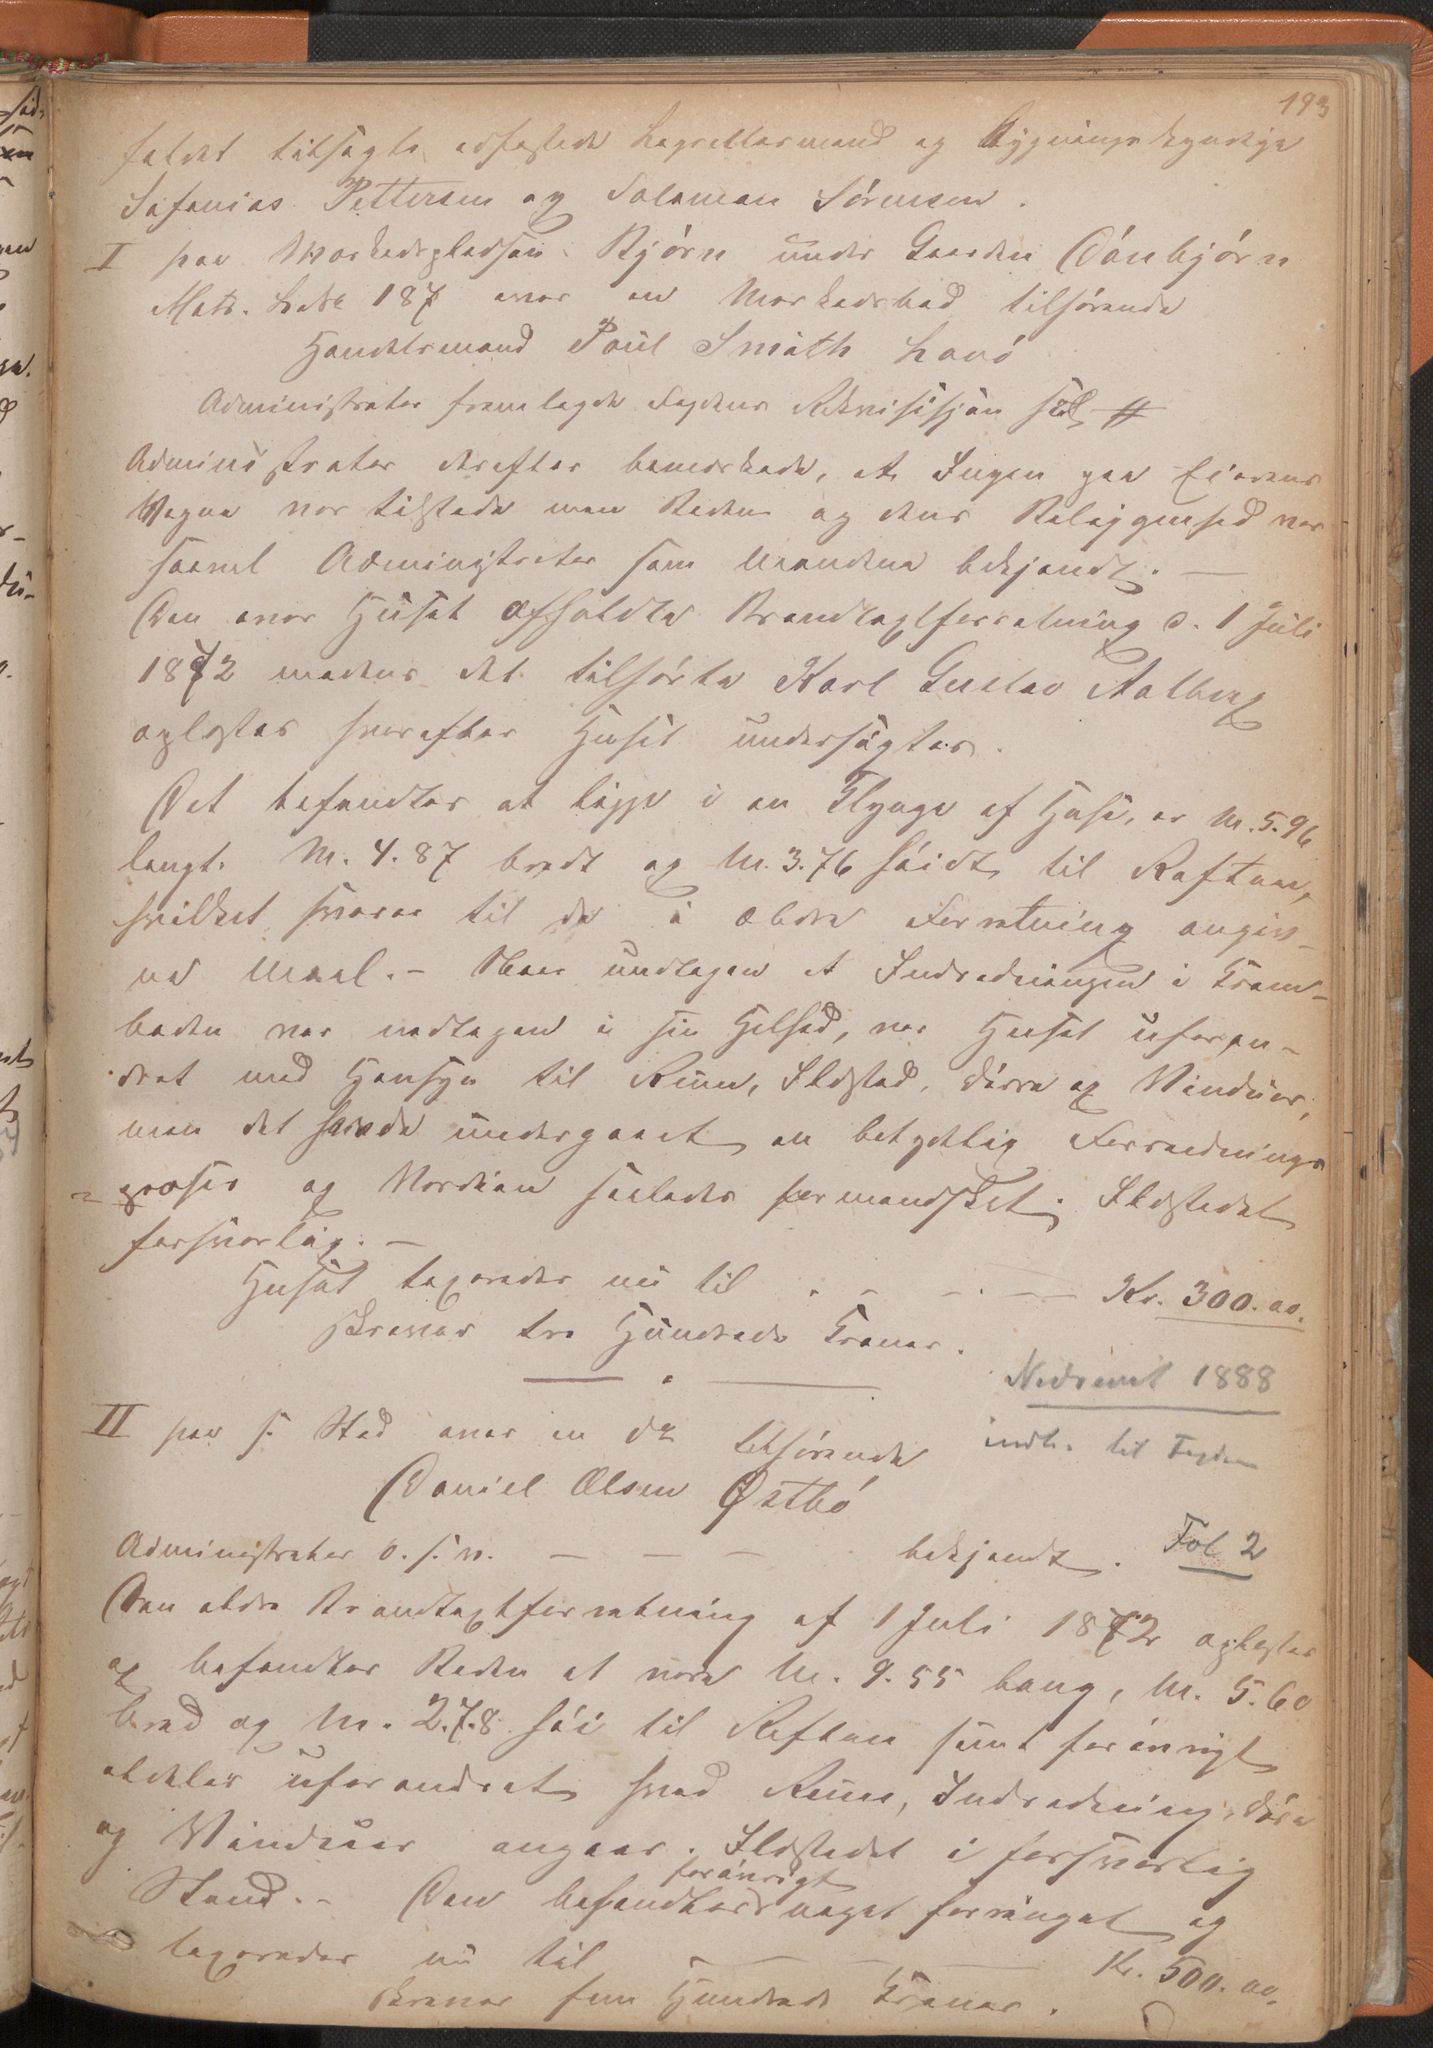 193
faldet tilsagte edfæstede Lagrettesmænd og Bygningskyndige
Safanias Pettersen og Salamon Sörensen.
I paa Markedspladsen Bjørn under Gaarden Dønbjørn
Matr. Løbe 187 over en Markedsbod tilhørende
Handelsmand Poul Smith Lovö
Administrator fremlagde Fogdens Rekvisisjon
Administrator derefter bemærkede, at Ingen paa Eierens
Vegne var tilstede men Boden og dens Beliggenhed var
saavel Administrator som Mændene bekjendt. —
Den over Huset afholdte Brandtaxtforretning d. 1 Juli
1872 medens det tilhörte Karl Gustav Aalberg
oplæstes hvorefter Huset undersøgtes.
Det befandtes at ligge i en Klynge af Huse, er M. 5.96
langt. M. 4.87 bredt og M. 3.76 höidt til Raftem,
hvilket svarer til de i ældre Forretning angiv-
ne Maal. – Naar undtagen at Indredningen i Kram-
boden var nedtagen i sin Helhed, var Huset uforan-
dret med Hensyn til Rum, Ildsted, Dørre og Vinduer,
men det havde undergaaet en betydelig Forraadnings
proces og Værdien saaledes formindsket. Ildstedet
forsvarlig. —
Huset taxeredes nu til . – – . — Kr. 300. oo.
skriver tre Hundrede Kroner.
Nedrevet 1888
indb. til Fogden
II paa s. Sted over en do tilhørende
Daniel Olsen Østbö
Administrator o. s. v. — — — bekjendt. Fol 2
Den ældre Brandtaxtforretning af 1 Juli 1872 oplæstes
og befandtes Boden at være M. 9.55 lang, M. 5.60
bred og M. 2.78 höi til Raften samt forövrigt
aldeles uforandret hvad Rum, Indredning, Döre
og Vinduer angaar. Ildstedet i forsvarlig
Stand. – Den befandtes forövrigt noget forringet og
taxeredes nu til — — Kr. 500. oo.
skriver fem Hundrede Kroner.